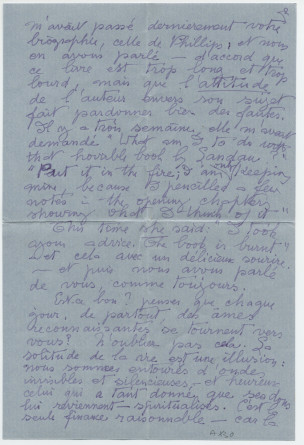 2
m'avait passé dernièrement votre
biographie, celle de Phillips, et nous
en avons parlé – d'accord que
ce livre est trop long et trop
lourd, mais que l'attitude
de l'auteur envers son sujet
fait pardonner bien des fautes.
Il y a trois semaines, elle m'avait
demandé "What am I to do with
that horrible book by
"Put it in the fire; I am keeping
mine because I pencilled a few
notes in the opening chapters
showing what I think of it"
This time she said: "I took
your advice. The book is burnt."
Et cela avec un délicieux sourire.
– et puis nous avons parlé
de vous comme toujours.
bon? penser que chaque
jour, de partout, des âmes
reconnaissantes se tournent vers
vous? N'oubliez pas cela. La
solitude de la vie est une illusion:
nous sommes entourés d'ondes
invisibles et silencieuses, et heureux
celui qui a tant donné que ses dons
lui reviennent – spiritualisés. C'est la
seule finance raisonnable – car la